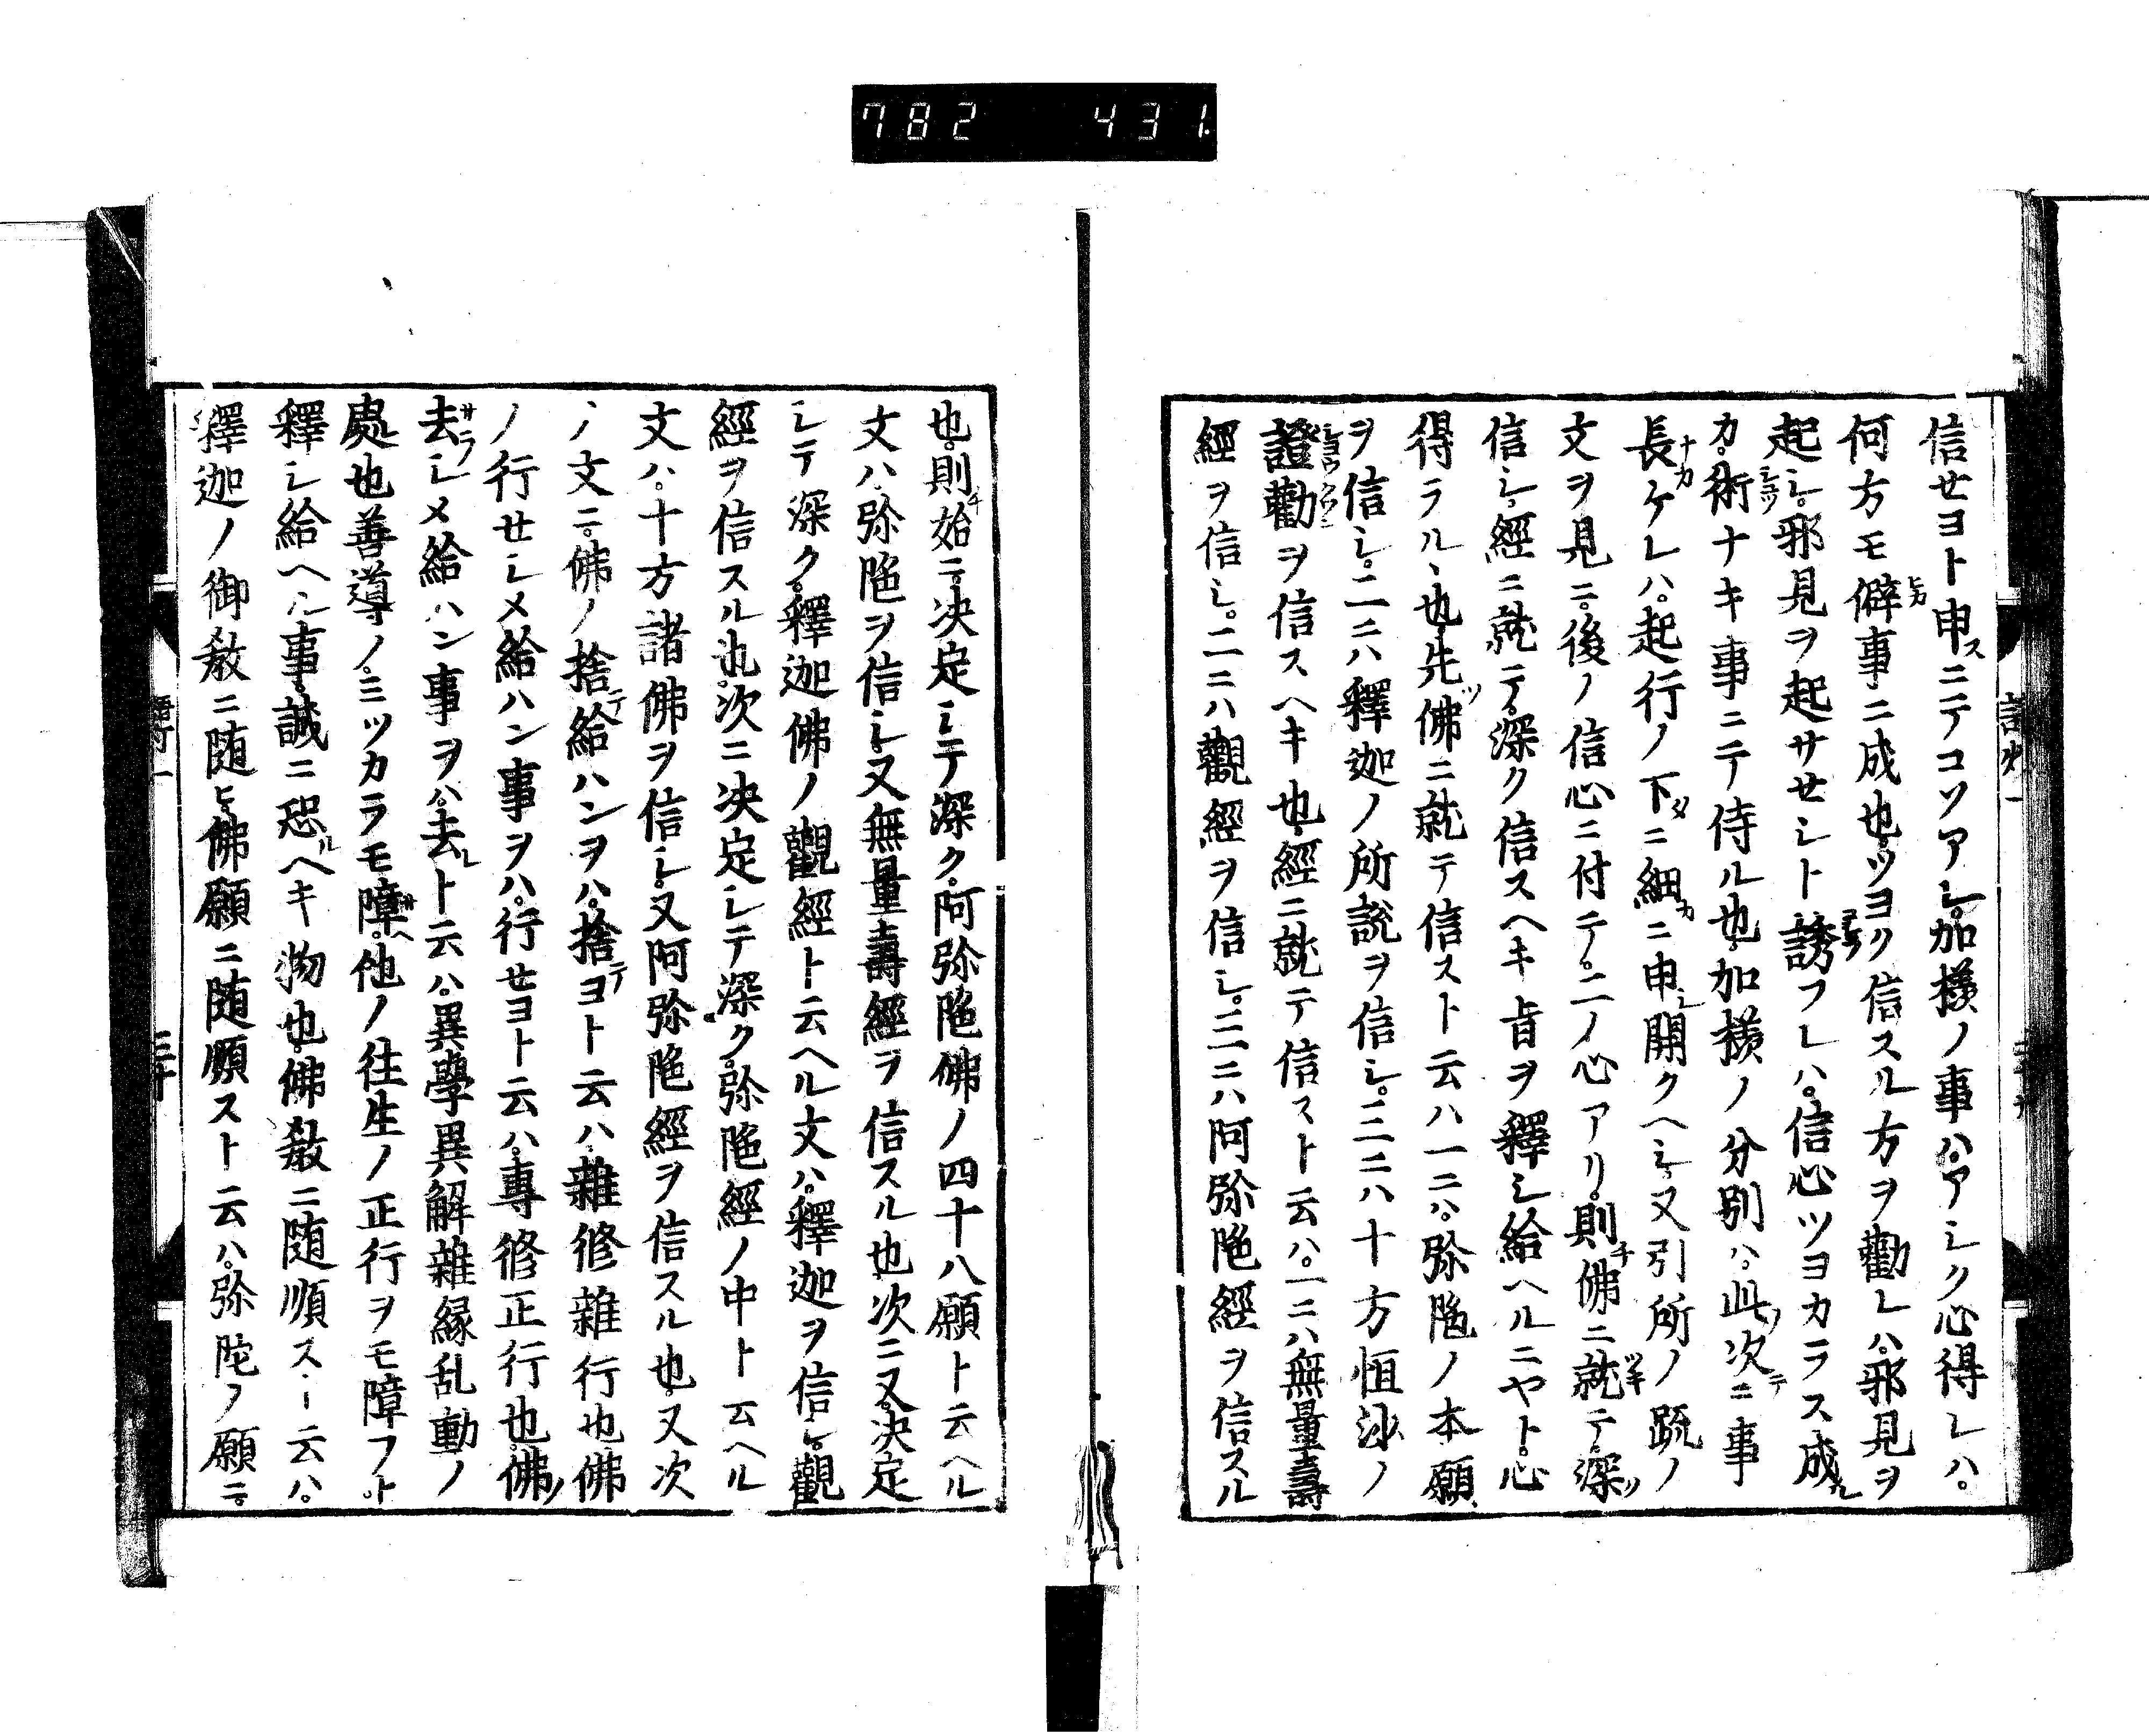 782 431
信セヨト申スニテコソアレ。加様ノ事ハ。アシク心得レハ。
何方モ僻事ニ成也。ツヨク信スル方ヲ勸レハ。邪見ヲ
起シ。邪見ヲ起サセシト誘フレハ。信心ツヨカラス成ル
カ。術ナキ事ニテ侍ル也。加様ノ分別ハ。此次テニ事
長ケレハ。起行ノ下タニ細カニ申シ開クヘシ。又引所ノ疏ノ
文ヲ見ニ。後ノ信心ニ付テ。二ノ心アリ。則チ佛ニ就テ。深ツ
信シ。經ニ就テ。深ク信スヘキ旨ヲ釋シ給ヘルニヤト。心
得ラルヽ也。先ツ佛ニ就テ信スト云ハ一ニハ。弥陁ノ本願
ヲ信シ。二ニハ釋迦ノ所説ヲ信シ。三ニハ十方恒沙ノ
證勸ヲ信スヘキ也。經ニ就テ信スト云ハ。一ニハ無量壽
經ヲ信シ。二ニハ觀經ヲ信シ。三ニハ阿弥陁經ヲ信スル
也。則チ始ニ。决定シテ深ク。阿弥陁佛ノ四十八願ト云ヘル
文ハ。弥陁ヲ信シ。又無量壽經ヲ信スル也。次ニ又。决定
シテ深ク。釋迦佛ノ觀經ト云ヘル文ハ。釋迦ヲ信シ。觀
經ヲ信スル也。次ニ决定シテ深ク。弥陁經ノ中ト云ヘル
文ハ。十方諸佛ヲ信シ。又阿弥陁經ヲ信スル也。又次
ノ文ニ。佛ノ捨テ給ハンヲハ。捨テヨト云ハ。雜修雜行也佛
ノ行セシメ給ハン事ヲハ。行セヨト云ハ。專修正行也。佛ノ
去ラシメ給ハン事ヲハ。去レト云ハ。異學異解雜縁乱動ノ
處也善導ノ。ミツカラモ障ヘ。他ノ往生ノ正行ヲモ障フト
釋シ給ヘル事。誠ニ恐ルヘキ物也。佛教ニ随順スト云ハ。
釋迦ノ御教ニ随ヒ。佛願ニ随順スト云ハ。弥陀ノ願ニ。